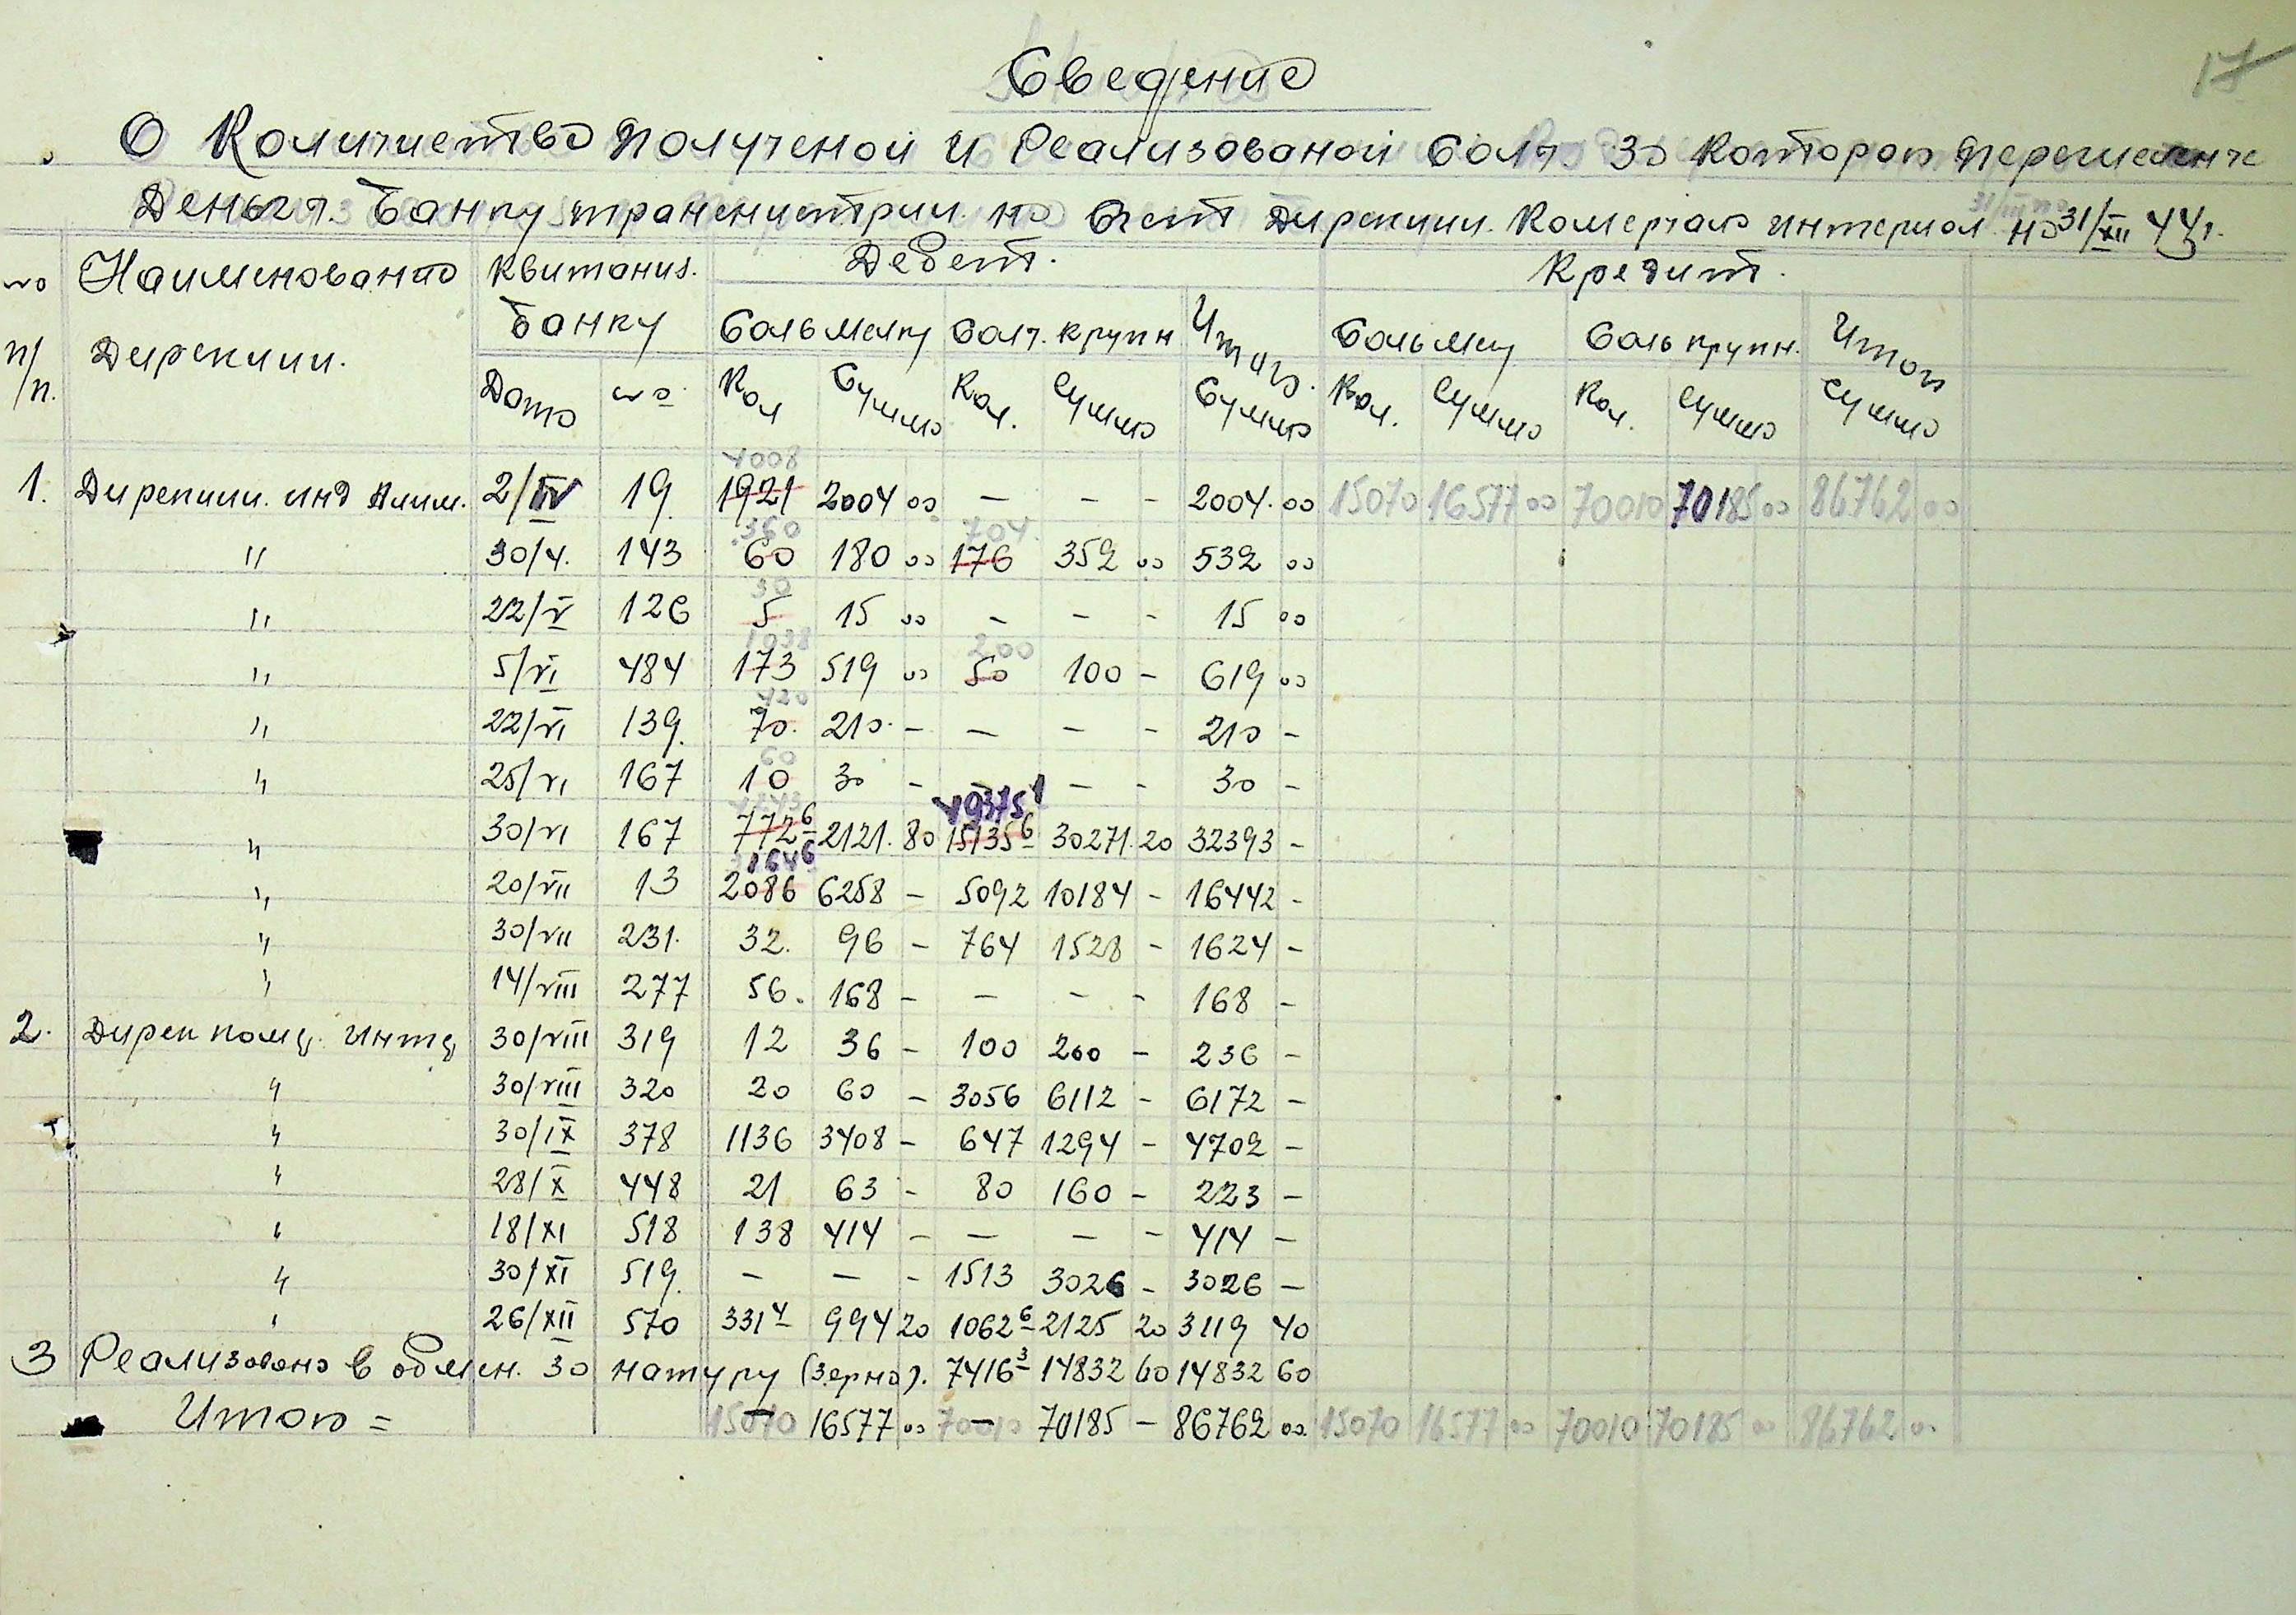 17
Сведение
О Количиство Полученой и Реализованой Соли За которая Перечислене
Деньги Банку транснистрии на Счет Дирекции Комерчало интериал на 31/XII 44г.
№ Наименование квитания. Дебет. Кредит.
п/п. Дирекции. Банку Соль Мелку Соль крупн Итого Соль Мелку Соль крупн. Итого
Дата № Кол Сумма Кол. Сумма Сумма Кол. Сумма Кол. Сумма Сумма
1008
1. Дирекции инд Алим. 2/IV 19 1921 2004 00 — — — 2004 00 15070 16577 00 70010 70185 00 86762 00
360 704
" 30/4. 143 60 180 00 176 352 00 532 00
30
" 22/V 126 5 15 00 — — — 15 00
1038 200
" 5/VI 484 173 519 00 50 100 — 619 00
420
" 22/VI 139 70 210 — — — — 210 —
60
" 25/VI 167 10 30 — — — — 30 —
49375 1
" 30/VI 167 772 6 2121 80 15135 6 30271 20 32393 —
1646
" 20/VII 13 2086 6258 — 5092 10184 — 16442 —
" 30/VII 231 32 96 — 764 1528 — 1624 —
" 14/VIII 277 56 168 — — — — 168 —
2. Дирек комц. Интд 30/VIII 319 12 36 — 100 200 — 236 —
" 30/VIII 320 20 60 — 3056 6112 — 6172 —
" 30/IX 378 1136 3408 — 647 1294 — 4702 —
" 28/X 448 21 63 — 80 160 — 223 —
" 18/XI 518 138 414 — — — — 414 —
" 30/XI 519 — — — 1513 3026 — 3026 —
" 26/XII 570 331 4 994 20 1062 6 2125 20 3119 40
3 Реализовано в обмен. За натуру (Зерно). 7416 3 14832 60 14832 60
Итого = 15070 16577 00 70010 70185 — 86762 00 15070 16577 00 70010 70185 00 86762 00